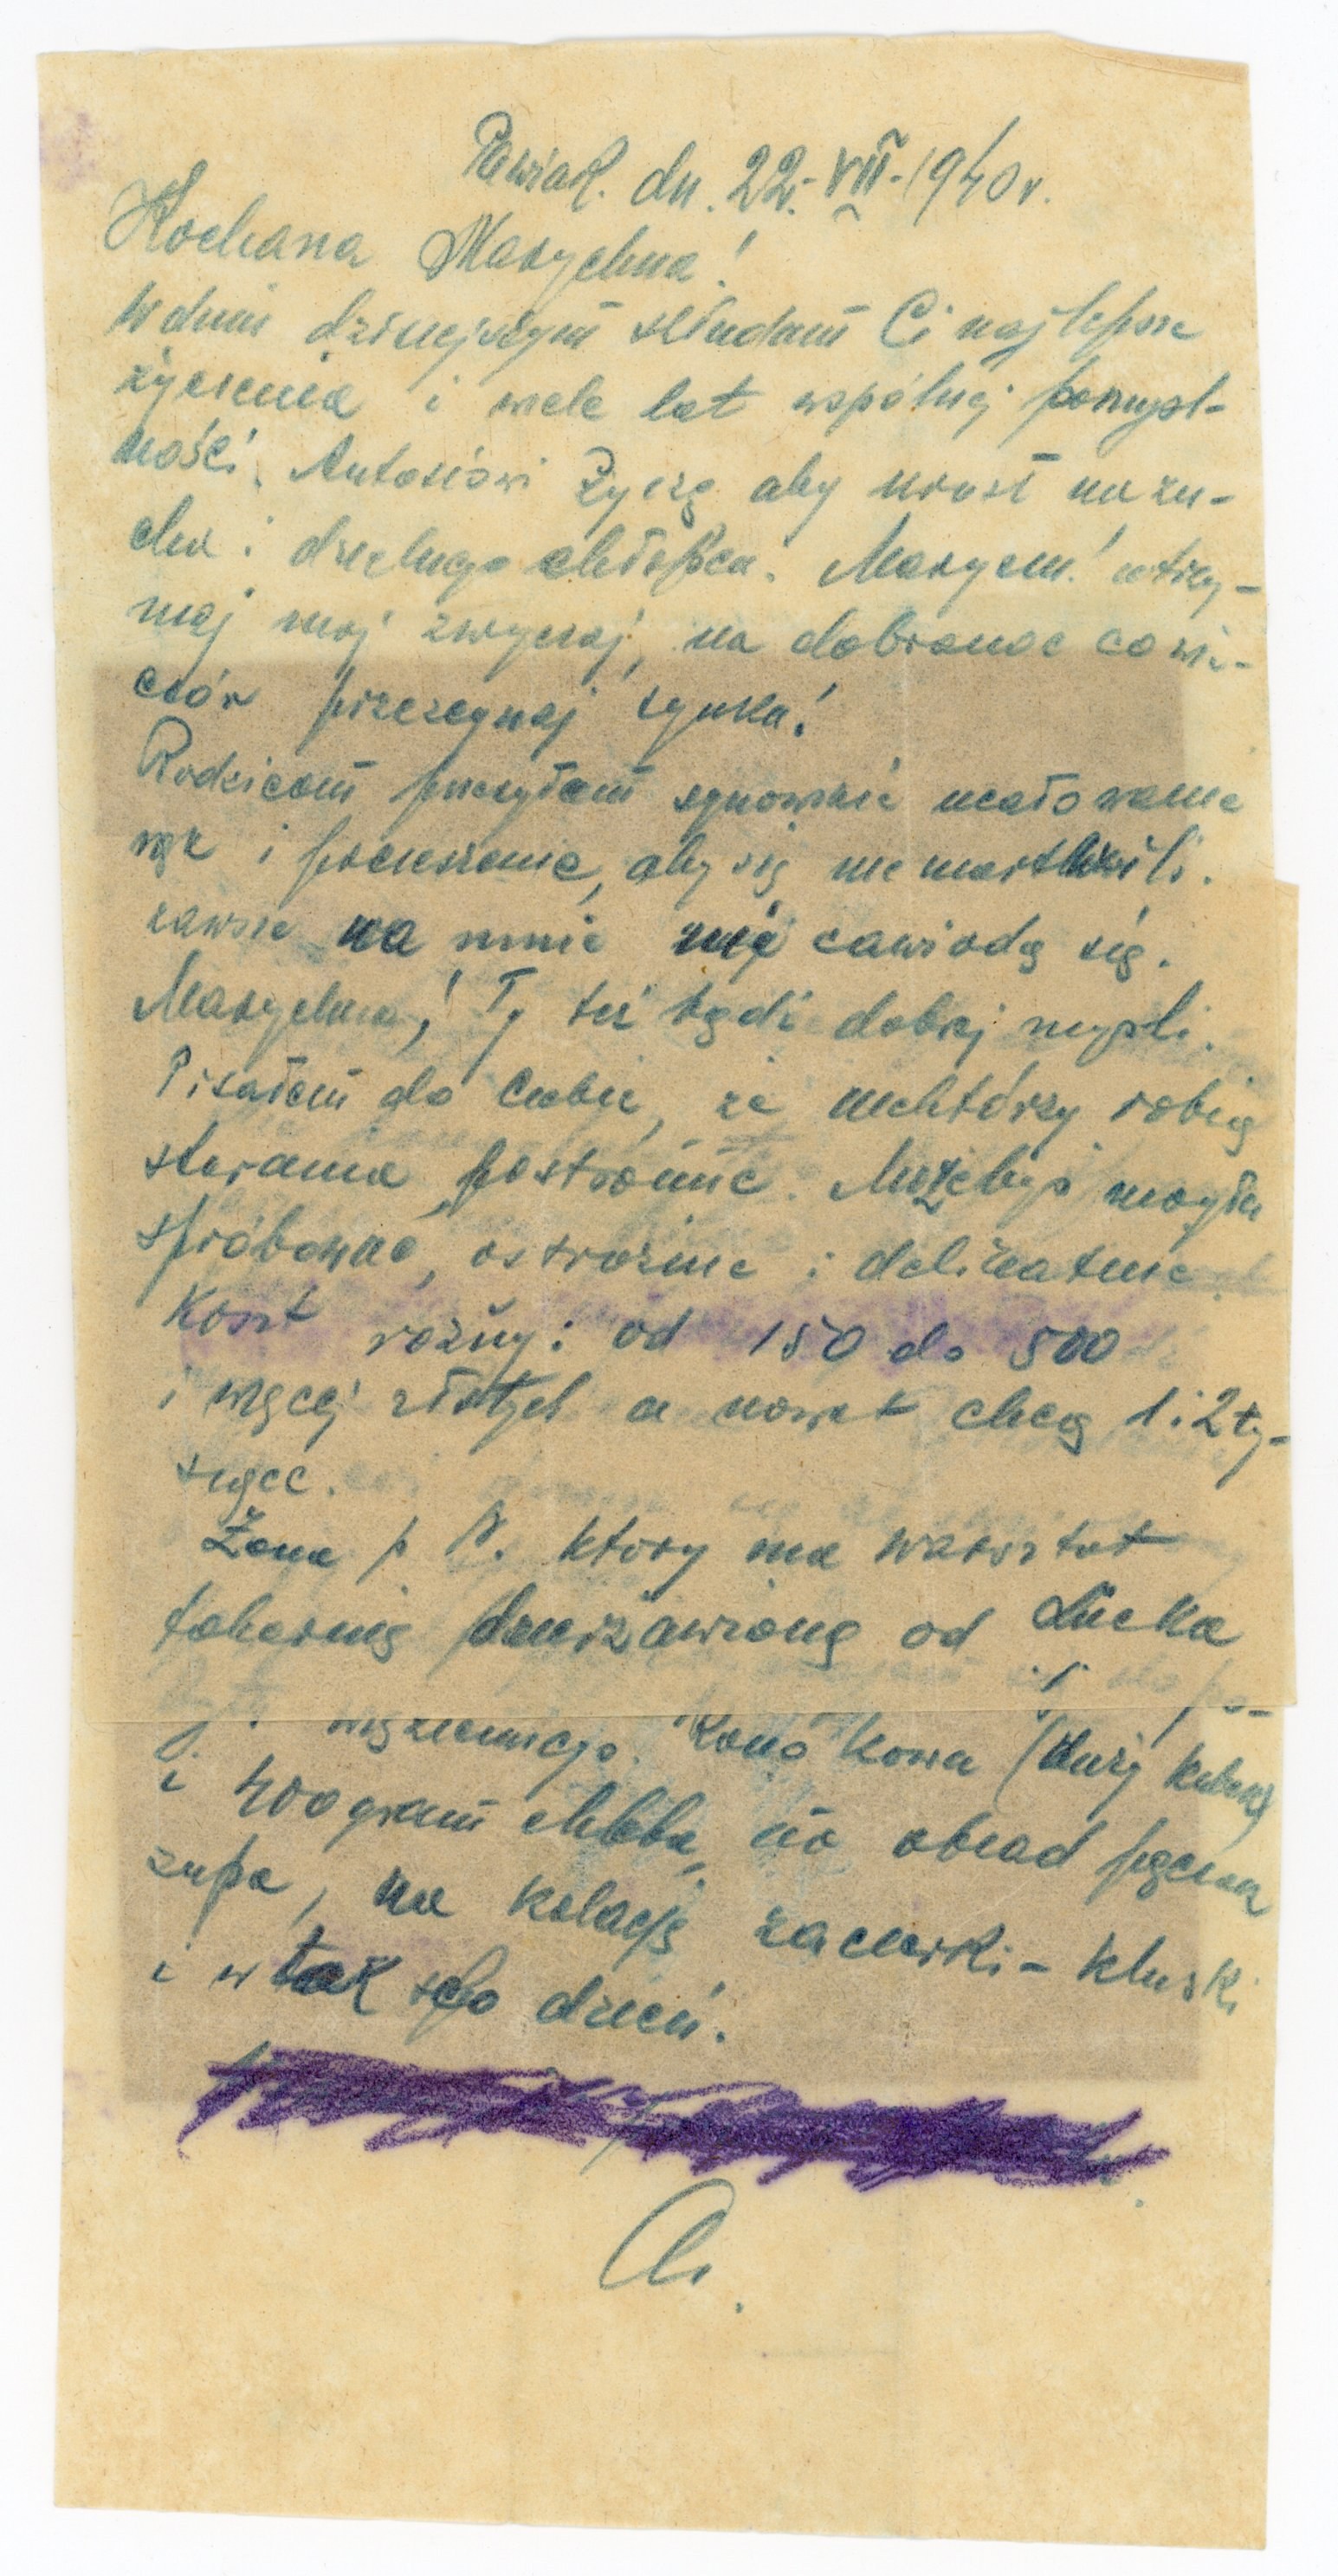 Pawiak. dn. 22. VII. 1940 r.
Kochana Marychna!
W dniu dzisiejszym składam Ci najlepsze
życzenia i wiele lat wspólnej pomyśl-
ności. Antosiowi życzę aby urósł na zu-
cha i dzielnego chłopca. Marycha! utrzy-
maj mój zwyczaj, na dobranoc co wie-
czór przeżegnaj synka!
Rodzicom przesyłam synowskie ucałowanie
rąk i pocieszenie, aby się nie martwili.
zawsze na mnie nie zawiodą się.
Marychna! Ty też bądź dobrej myśli.
Pisałem do Ciebie, że niektórzy robią
starania postronne. Możebyś mogła
spróbować, ostrożnie i delikatnie.
Koszt rożny: od 150 do 500
i więcej złotych a nawet chcą 1 i 2 ty-
siące.
Żona p. N. ktory ma warsztat
tokarnię dzierżawioną od Lucka
więziennego. Rano kawa (duży kubek)
i 400 gram chleba, na obiad pęczak
zupa, na kolację zacierki - kluski
i w tak co dzień.
A.